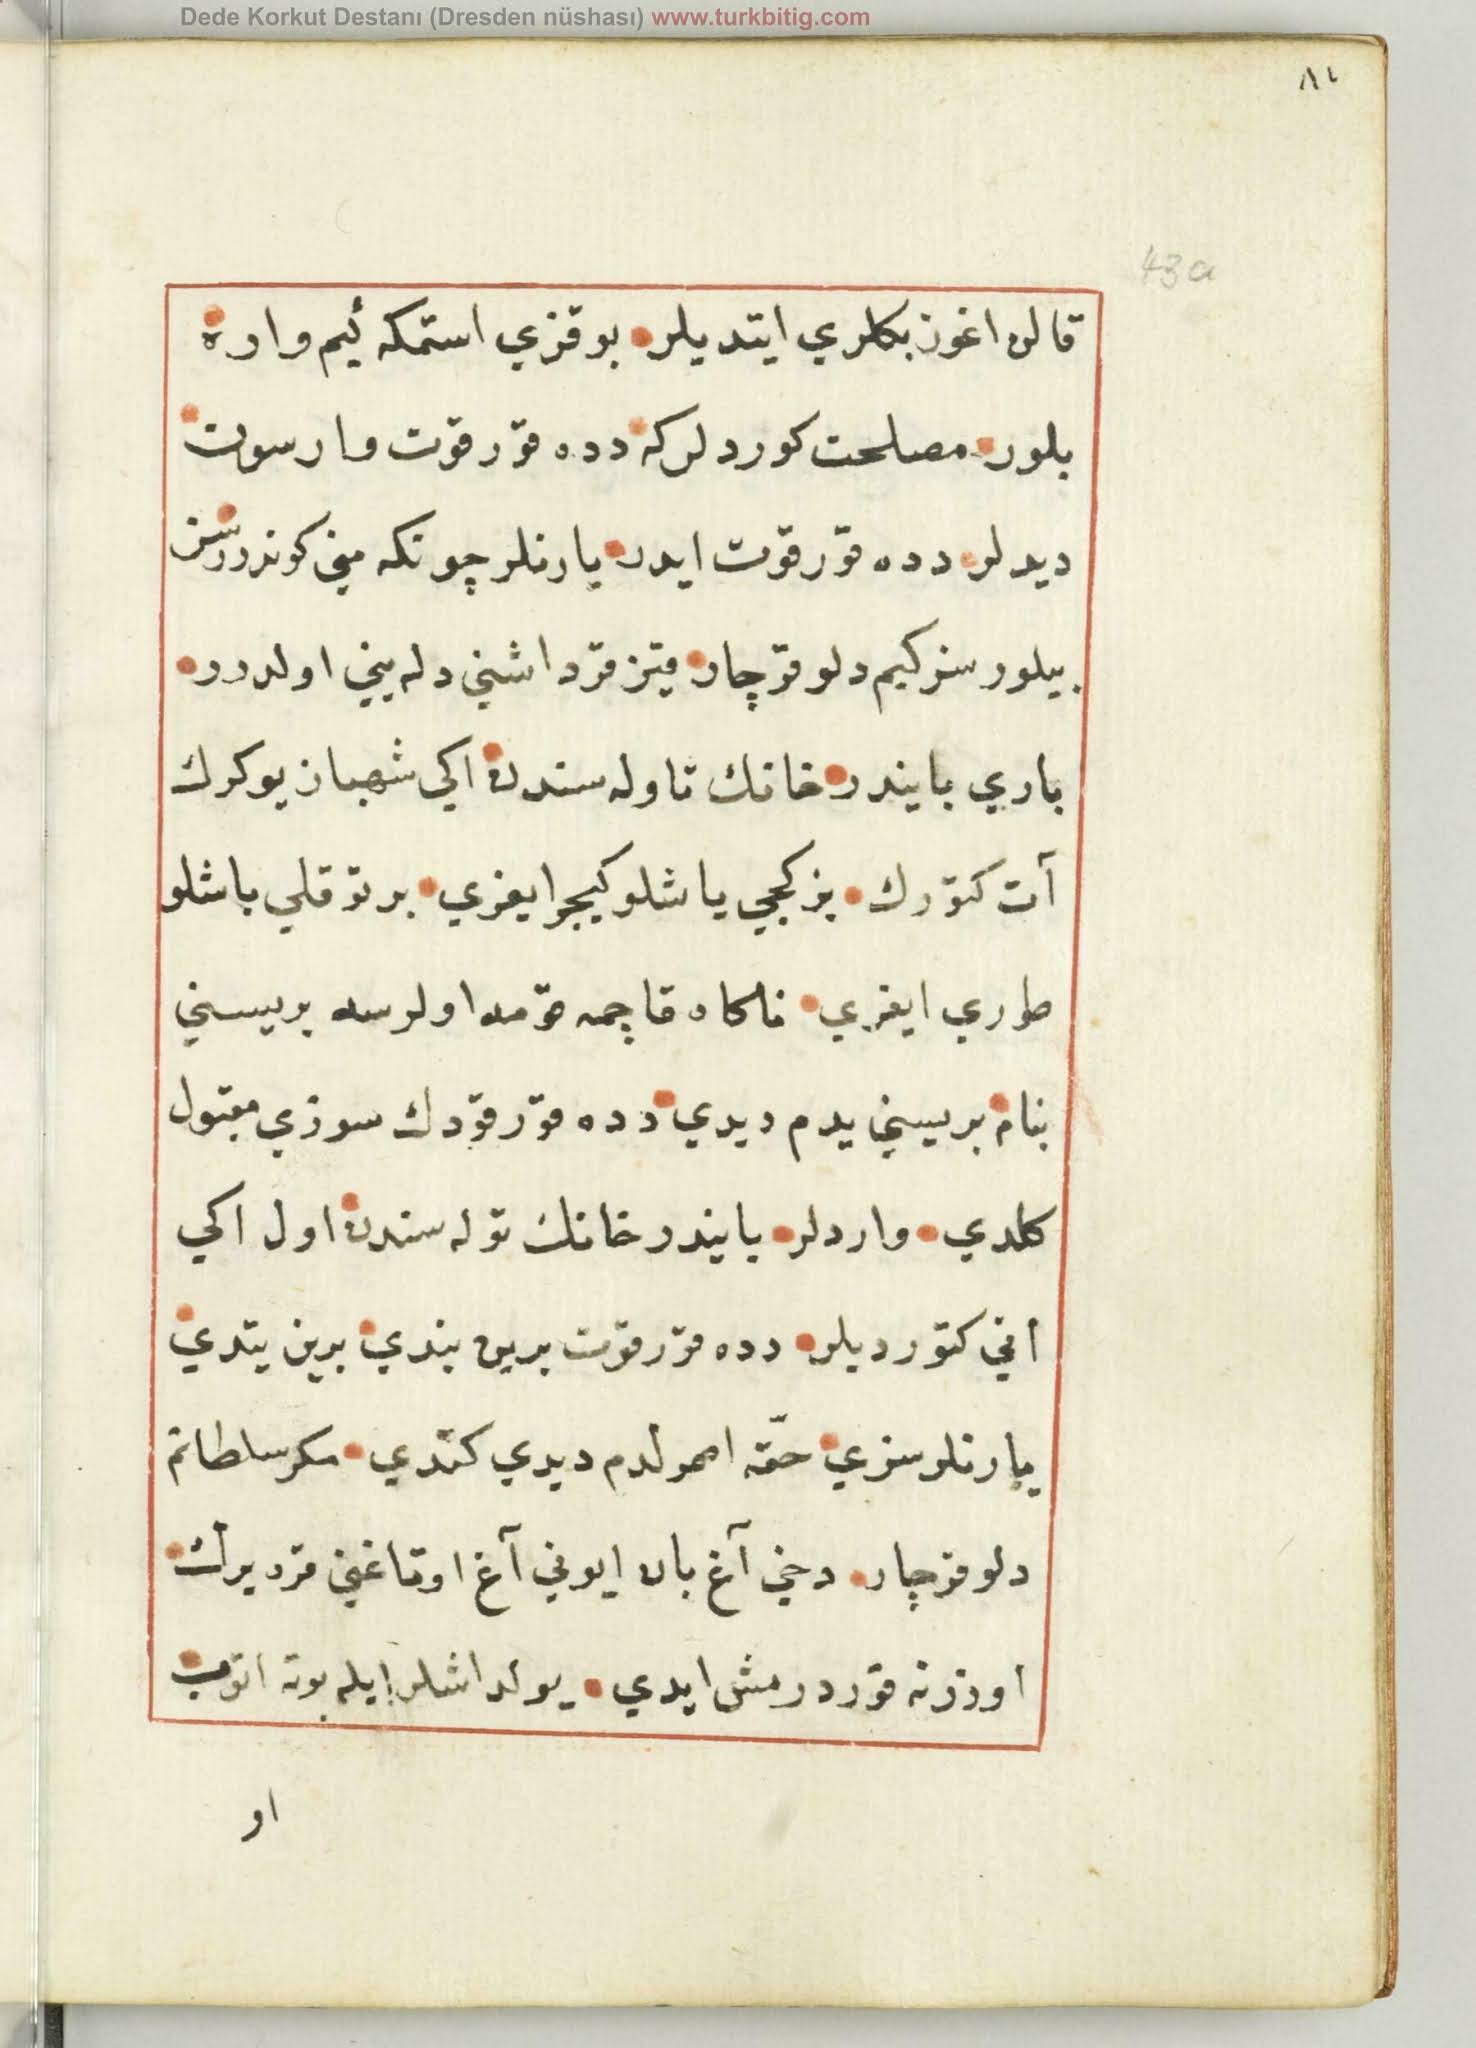 Dede Korkut Destanı (Dresden nüshası) www.turkbitig.com
٨١
43a
قالن اغوز بكلري ايتديلر بو قزي استمكه ئيم واره
بلور مصلحت كوردلر كه دده قورقوت وارسون
ديدلر دده قورقوت ايدر يارنلر چونكه مني كوندررسز
بيلورسز كيم دلو قوچار قيز قرداشني دله يني اولدرر
باري بايندر خانك تاوله سندن اكي شهباز يوكرك
آت كتورك بر كچي باشلو كيچر ايغري بر توقلي باشلو
طوري ايغري ناكاه قاچمه قومه اولرسه بريسني
بنام بريسني يدم ديدي دده قورقودك سوزي معقول
كلدي واردلر بايندر خانك توله سندن اول اكي
اتي كتورديلر دده قورقوت برين بندي برين يتدي
يارنلر سزي حقه اصمرلدم ديدي كتدي مكر سلطانم
دلو قرچار دخي آغ بان ايوني آغ اوتاغني قره يرك
اوززنه قوردرمش ايدي يولداشلر ايله بوته اتوب
او